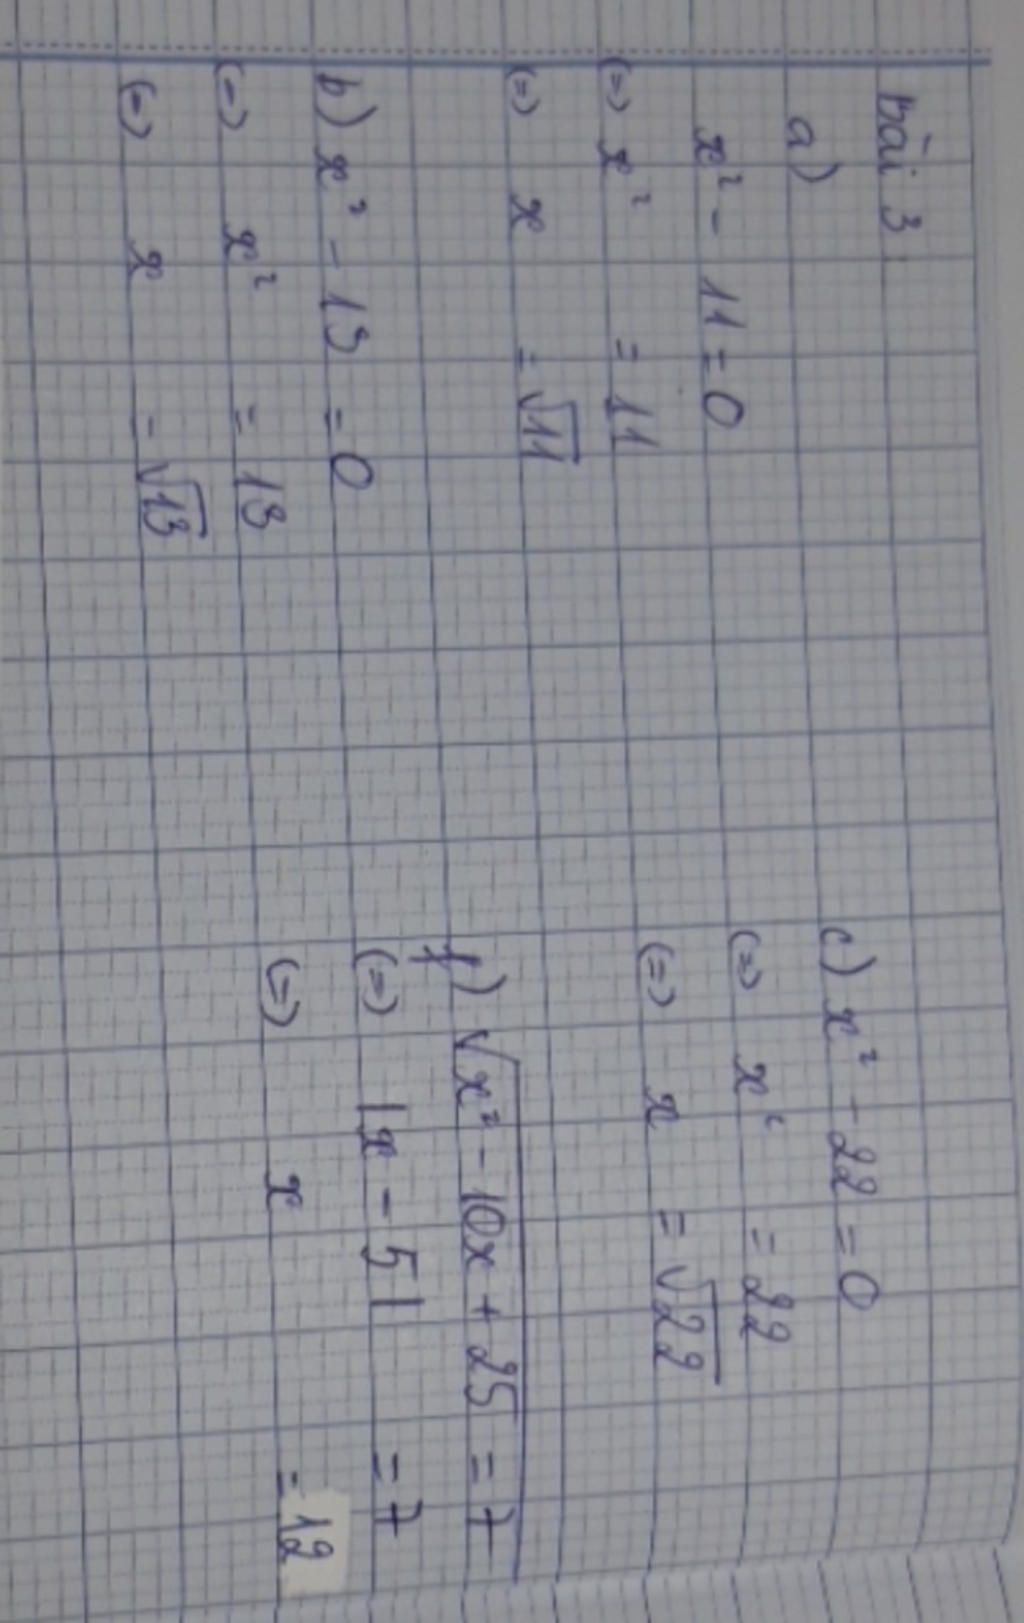 Bài 3
a)
x² - 11 = 0
(=) x² = 11
(=) x = √11
b) x² - 13 = 0
(=) x² = 13
(=) x = √13
c) x² - 22 = 0
(=) x² = 22
(=) x = √22
f) √x² - 10x + 25 = 7
(=) |x - 5| = 7
(=) x = 12